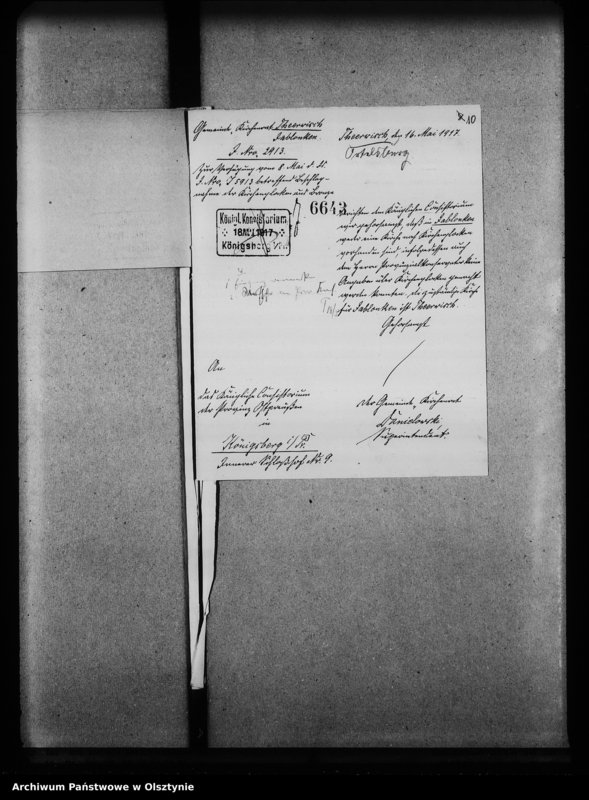 10
Gemeinde-Kirchenrat Theerwisch
Jablonken.
J. Nro. 2913.
Theerwisch, den 16. Mai 1917.
Ortelsburg
Zur Verfügung vom 8. Mai d. Js.
J. Nro. J 5913 betreffend Beschlag-
nahme der Kirchenglocken aus Bronze
6643
Königl. Konsistorium
18 MAI 1917
Königsberg i. Pr.
berichten dem Königlichen Consistorium
wir gehorsamst, daß in Jablonken
weder eine Kirche noch Kirchenglocken
vorhanden sind, infolgedessen auch
dem Herrn Provinzialkonservator keine
Angaben über Kirchenglocken gemacht
werden konnten. Die zuständige Kirche
für Jablonken ist Theerwisch.
Gehorsamst
An
das Königliche Consistorium
der Provinz Ostpreußen
in
Königsberg i/Pr.
Innerer Schloßhof Nr. 9.
Der Gemeinde-Kirchenrat
Danielowski,
Superintendent.
Archiwum Państwowe w Olsztynie